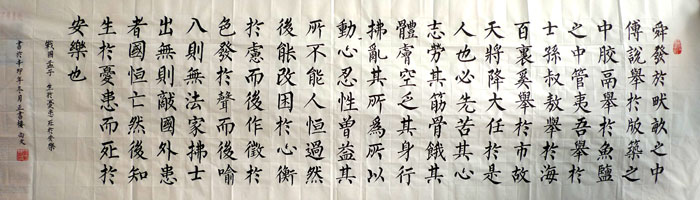 舜發於畎畝之中
傅說舉於版築之
中膠鬲舉於魚鹽
之中管夷吾舉於
士孫叔敖舉於海
百裏奚舉於市故
天將降大任於是
人也必先苦其心
志勞其筋骨餓其
體膚空乏其身行
拂亂其所為所以
動心忍性曾益其
所不能人恒過然
後能改困於心衡
於慮而後作徵於
色發於聲而後喻
入則無法家拂士
出無則敵國外患
者國恒亡然後知
生於憂患而死於
安樂也
戰國孟子 生於憂患死於安樂
書於辛卯年冬月正書樓